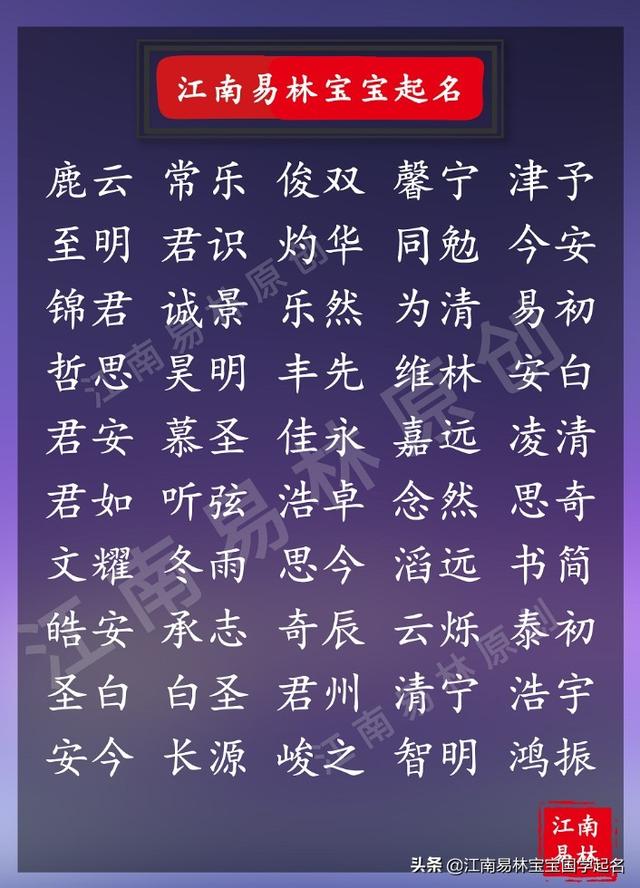 江南易林宝宝起名
鹿云 常乐 俊双 馨宁 津予
至明 君识 灼华 同勉 今安
锦君 诚景 乐然 为清 易初
哲思 昊明 丰先 维林 安白
君安 慕圣 佳永 嘉远 凌清
君如 听弦 浩卓 念然 思奇
文耀 冬雨 思今 滔远 书简
皓安 承志 奇辰 云烁 泰初
圣白 白圣 君州 清宁 浩宇
安今 长源 峻之 智明 鸿振
江南易林原创
江南易林原创
江南易林原创
江南
易林
头条 @江南易林宝宝国学起名